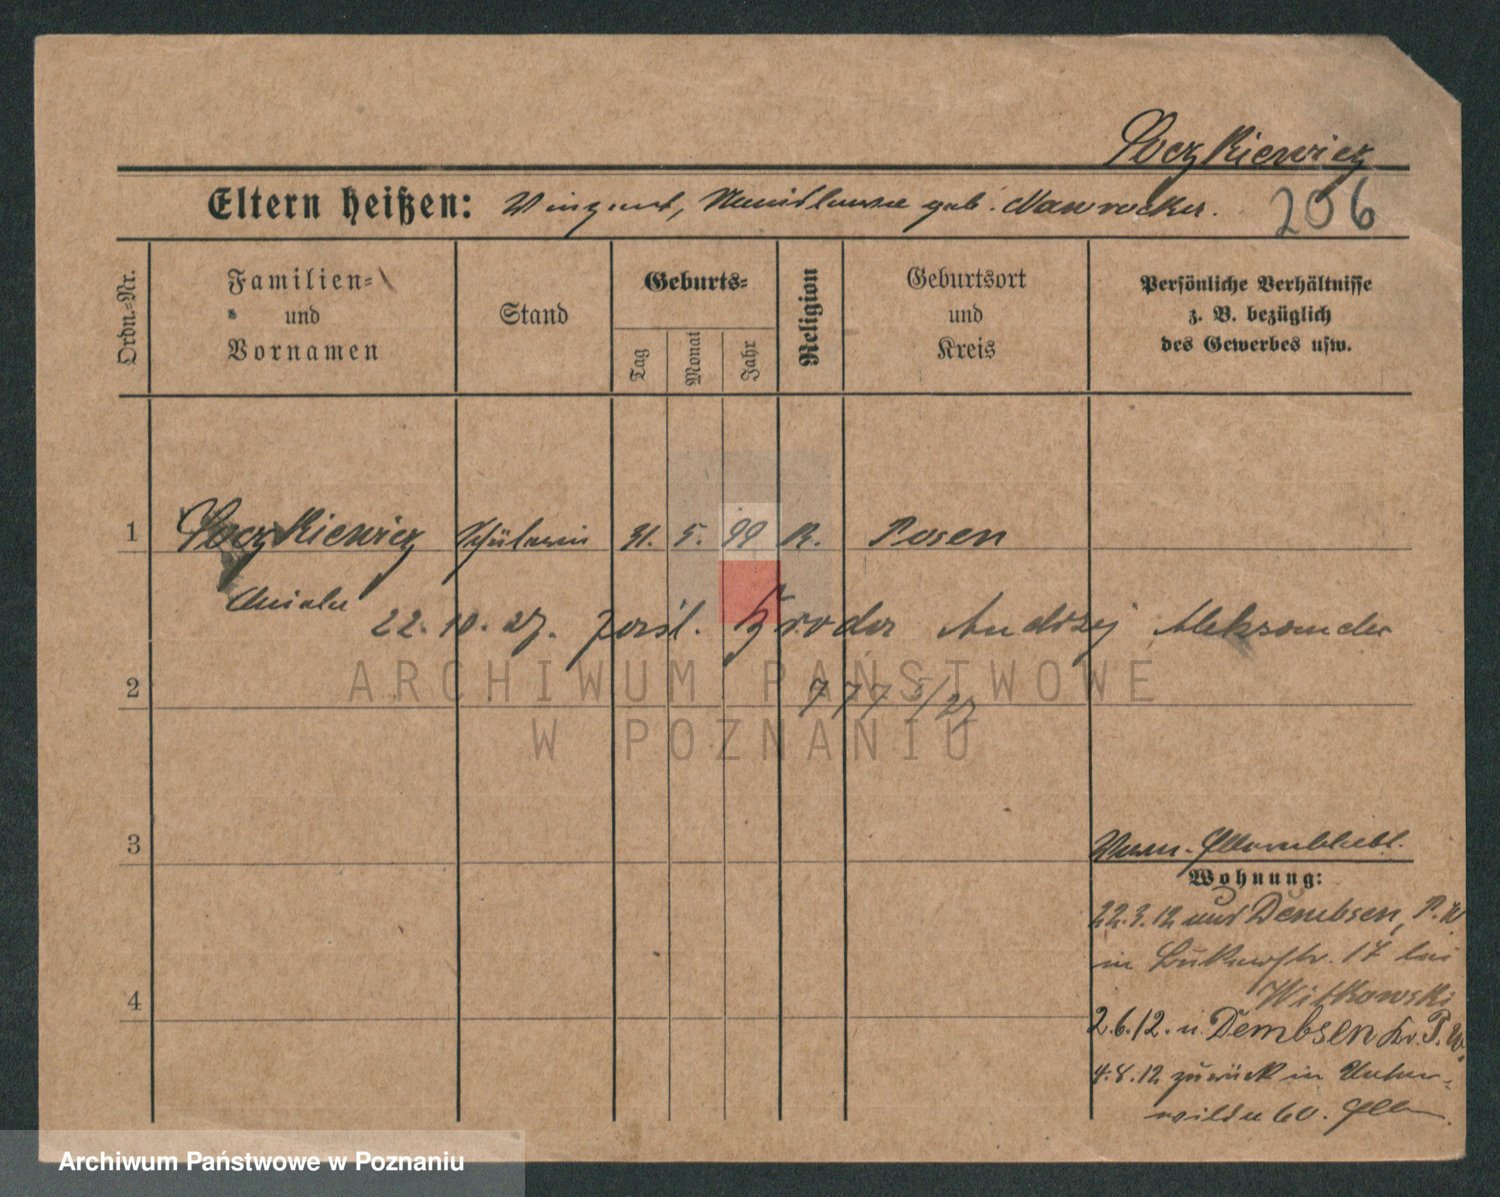 Soczkiewicz
Eltern heißen: Vinzent, geb. Nawrocka.
206
Ordn.=Nr.
Familien=
und
Vornamen
Stand
Geburts=
Tag
Monat
Jahr
Religion
Geburtsort
und
Kreis
Persönliche Verhältnisse
z. B. bezüglich
des Gewerbes usw.
1
Soczkiewicz Schülerin 31. 5. 99 K. Posen
Aniela
22.10.27. zaśl. Broda Andrzej Aleksander
2
777 5/27
3
4
Wohnung:
22.3.12 Dembsen, P.W
in 17 bei
Witkowski
2.6.12. n. Dembsen Kr. P. W.
4.8.12 zurück in Unter=
wilda 60.
ARCHIWUM PAŃSTWOWE
W POZNANIU
Archiwum Państwowe w Poznaniu